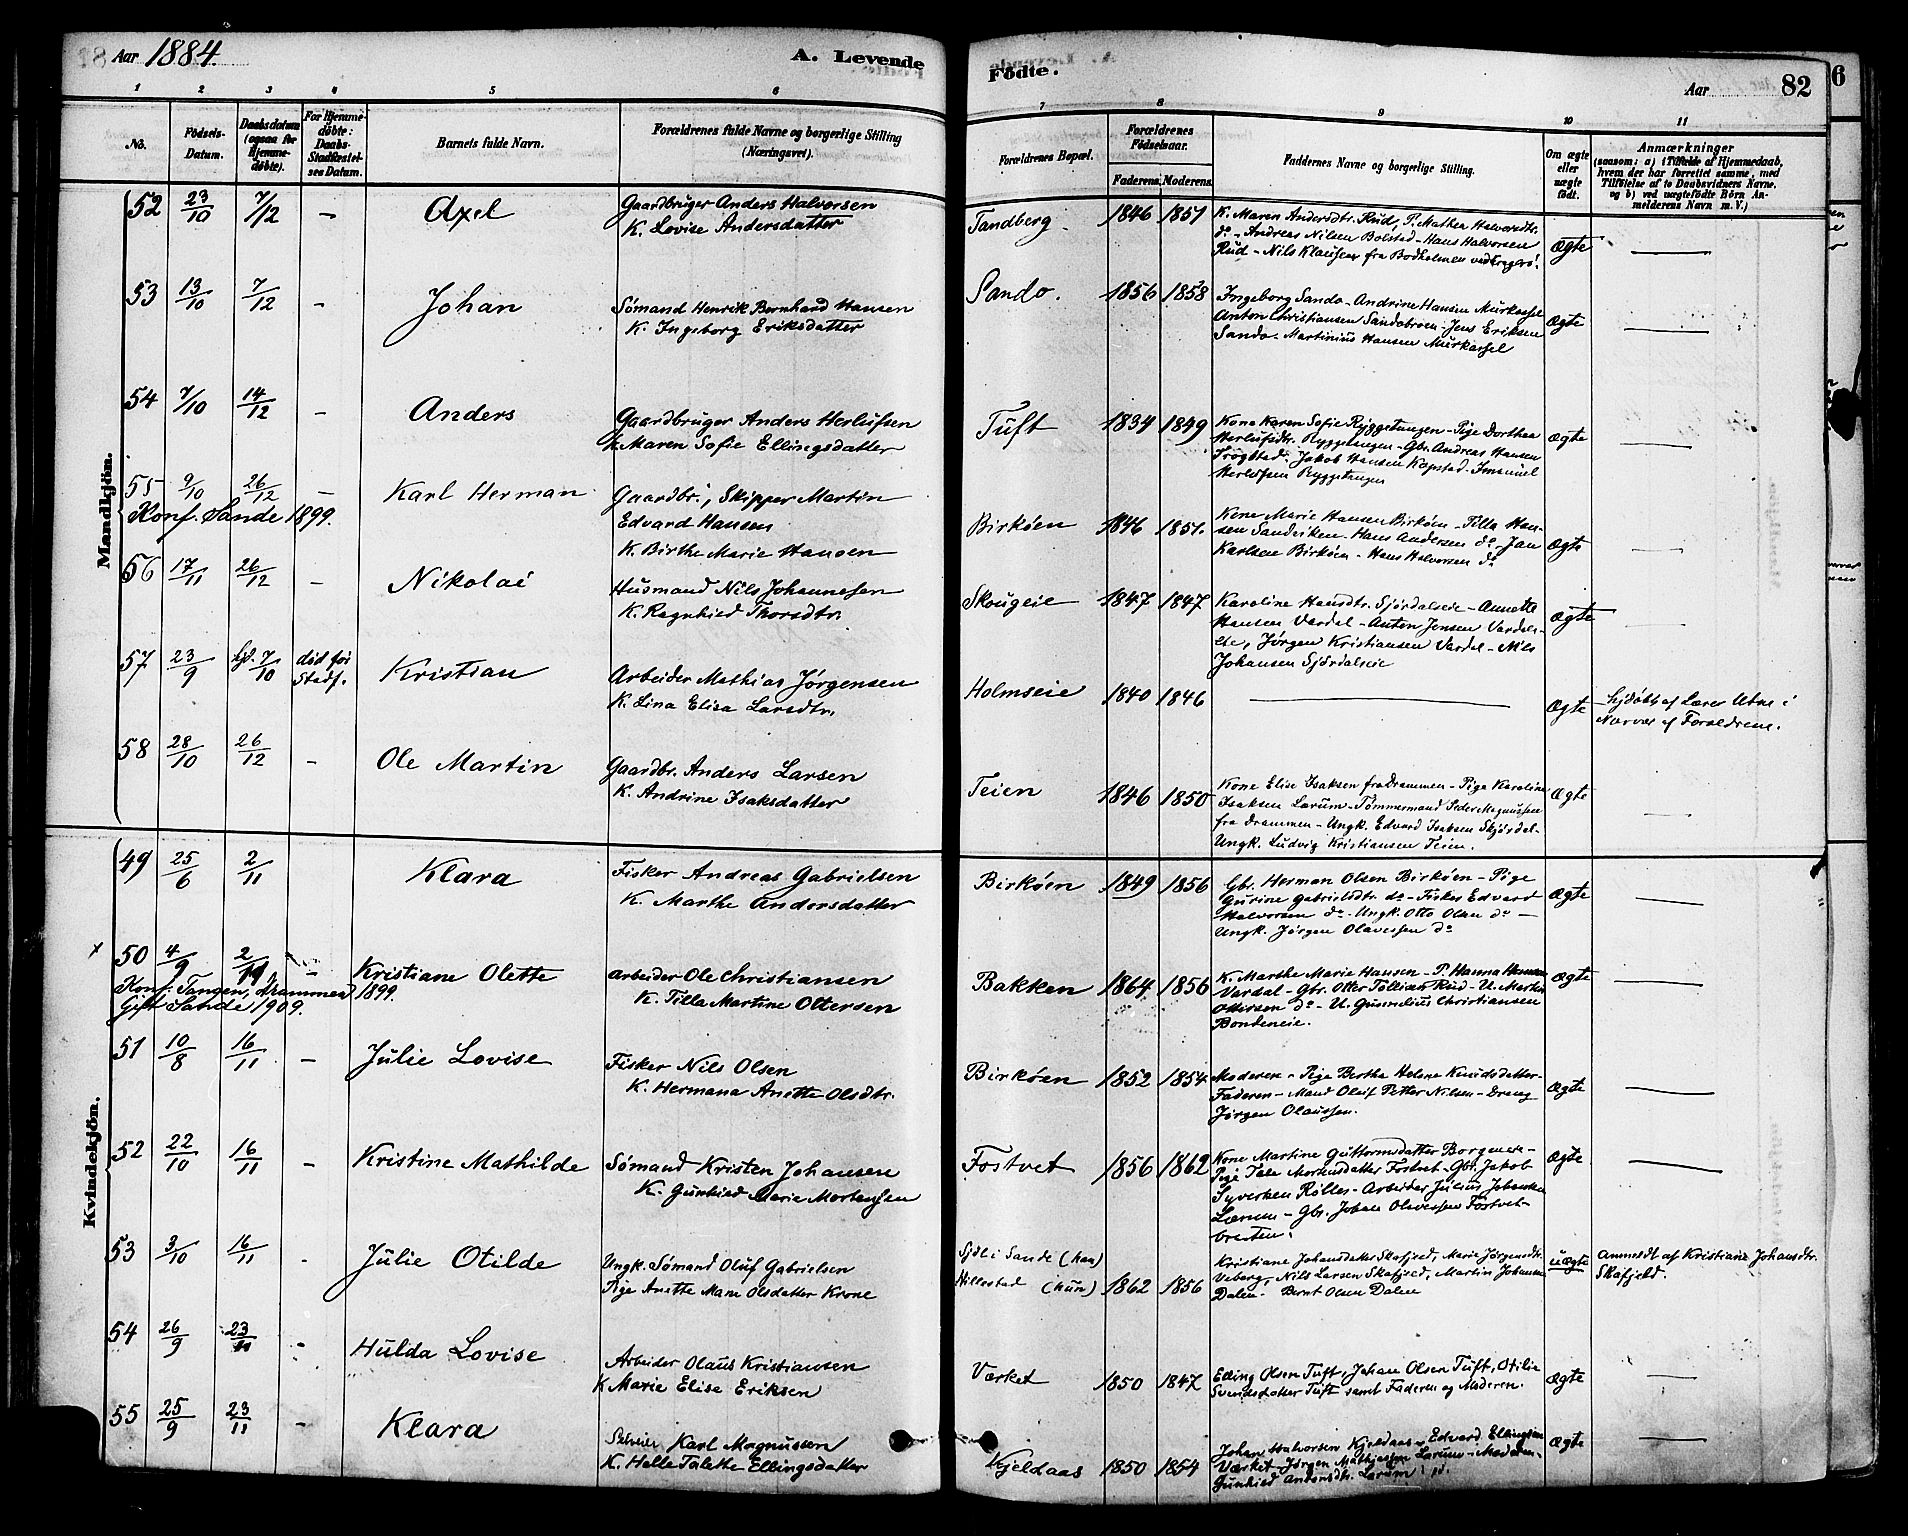 Aar 1884.
A. Levende
1 2 3 4 5 6
No.
Fødsels-
Datum.
Daabsdatum
(ogsaa for
Hjemme-
døbte).
For Hjemme-
døbte:
Daabs-
Stadfæstel-
ses Datum.
Barnets fulde Navn.
Forældrenes fulde Navne og borgerlige Stilling
(Næringsvei).
Mandkjön.
52 23/10 7/12 - Axel
Gaardbruger Anders Halvorsen
K. Lovise Andersdatter
53 13/10 7/12 - Johan
Sømand Henrik Bernhard Hansen
K. Ingeborg Eriksdatter
54 7/10 14/12 - Anders
Gaardbruger Anders Herlufsen
K. Maren Sofie Ellingsdatter
55 9/10 26/12 - Karl Herman
Konf. Sande 1899.
Gaardbr., Skipper Martin
Edvard Hansen
K. Birthe Marie Hansen
56 17/11 26/12 - Nikolai
Husmand Nils Johannesen
K. Ragnhild Thorsdtr.
57 23/9 hjd. 7/10 død før
Stadf.
Kristian
Arbeider Mathias Jørgensen
K. Lina Elisa Larsdtr.
58 28/10 26/12 - Ole Martin
Gaardbr. Anders Larsen
K. Andrine Isaksdatter
Kvindekjön.
49 25/6 2/11 Klara
Fisker Andreas Gabrielsen
K. Marthe Andersdatter
x 50 4/9 2/11 - Kristiane Olette
Konf. Tangen, Drammen 1899.
Gift Sande 1909.
Arbeider Ole Christiansen
K. Tilla Martine Ottersen
51 10/8 16/11 - Julie Lovise
Fisker Nils Olsen
K. Hermana Anette Olsdtr.
52 22/10 16/11 - Kristine Mathilde
Sømand Kristen Johansen
K. Gunhild Marie Mortensen
53 3/10 16/11 - Julie Otilde
Ungk. Sømand Oluf Gabrielsen
Pige Anette Marie Olsdatter Krone
54 26/9 23/11 - Hulda Lovise
Arbeider Olaus Kristiansen
K Marie Elise Eriksen
55 25/9 23/11 - Klara
Karl Magnussen
K. Helle Talette Ellingsdatter
Fødte.
Aar 82
7 8 9 10 11
Forældrenes Bopæl.
Forældrenes
Fødselsaar.
Faderens. Moderens.
Faddernes Navne og borgerlige Stilling.
Om ægte
eller
uægte
født.
Anmærkninger
(saasom: a) i Tilfælde af Hjemmedaab,
hvem der har forrettet samme, med
Tilføielse af to Daabsvidners Navne,
og b) ved uægtefødte Børn An-
melderens Navn m. V.)
Tandberg 1846 1851
K. Maren Andersdtr. Rud, P. Mathea Halvorsdtr.
do - Andreas Nilsen Bolstad - Hans Halvorsen
Rud - Nils Klausen fra Bodholmen ved Kragerø.
Ægte
Sando. 1856 1858
Ingeborg Sando - Andrine Hansen Murkassel
Anton Christiansen Sandobroen - Jens Eriksen
Sando - Martinius Hansen Murkassel
Ægte
Tuft 1834 1849
Kone Karen Sofie Ryggetangen - Pige Dorthea
Herlufsdtr. Ryggetangen - Gbr. Andreas Hansen
Trøgstad. Jakob Hansen Kapstad - Imanuel
Herlofsen Ryggetangen
Ægte
Birkøen 1846 1851.
Kone Marie Hansen Birkøen - Tilla Han-
sen Sandviken - Hans Andersen do - Jan
Karlsen Birkøen - Hans Halvorsen do
Ægte
Skougeie 1847 1847
Karoline Hansdtr. Sjørdalseie - Annette
Hansen Vardal - Anton Jensen Vardals-
eie, Jørgen Kristiansen Vardal - Nils
Johansen Sjørdalseie
Ægte
Holmseie 1840 1846
Ægte
Hjdøbt af Lærer Utne i
Nærvær af Forældrene.
Teien 1846 1850
Kone Elise Isaksen fra Drammen - Pige Karoline
Isaksen Lærum - Tømmermand Peder Magnussen
fra Drammen - Ungk. Edvard Isaksen Skjørdal -
Ungk. Ludvig Kristiansen Teien.
Ægte
Birkøen 1849 1856
Gbr. Herman Olsen Birkøen - Pige
Gurine Gabrielsdtr. do - Fisker Edvard
Halvorsen do - Ungk. Otto Olsen do -
Ungk. Jørgen Olavessen do
Ægte
Bakken 1864 1856
K. Marthe Marie Hansen - P. Hanna Hansen
Vardal - Gbr. Otter Rud - U. Martin
Ottersen do - U. Gunnelius Christiansen
Bondeneie.
Ægte
Birkøen 1852 1854
Moderen - Pige Berthe Helene Knudsdatter -
Faderen - Mand Oluf Petter Nilsen - Dreng
Jørgen Olaussen.
Ægte
Fostvet 1856 1862
Kone Martine Guttormsdatter Borgmen -
Pige Tale Mortensdatter Fostvet - Gbr. Jakob
Syversen Rølles - Arbeider Julius Johansen
Lærum - Gbr. Johan Olavessen Fostvet-
braten.
Ægte
Sjdl i Sande (han)
Hillestad (hun) 1862 1856
Kristiane Johansdatter Skafjeld, Marie Jørgensdtr.
Veberg, Nils Larsen Skafjeld, Martin Johansen
Dalen - Bernt Olsen Dalen
uægte
Anmeldt af Kristiane Johansdtr.
Skafjeld.
Værket 1850 1847
Elling Olsen Tuft, Johan Olsen Tuft, Otilie
Svendsdatter Tuft samt Faderen og Moderen.
Ægte
Kjeldaas 1850 1854
Johan Halvorsen Kjeldaas - Edvard Ellingsen
Værket - Jørgen Mathiesen Lærum - Moderen -
Gunhild Andersdtr. Lærum
Ægte